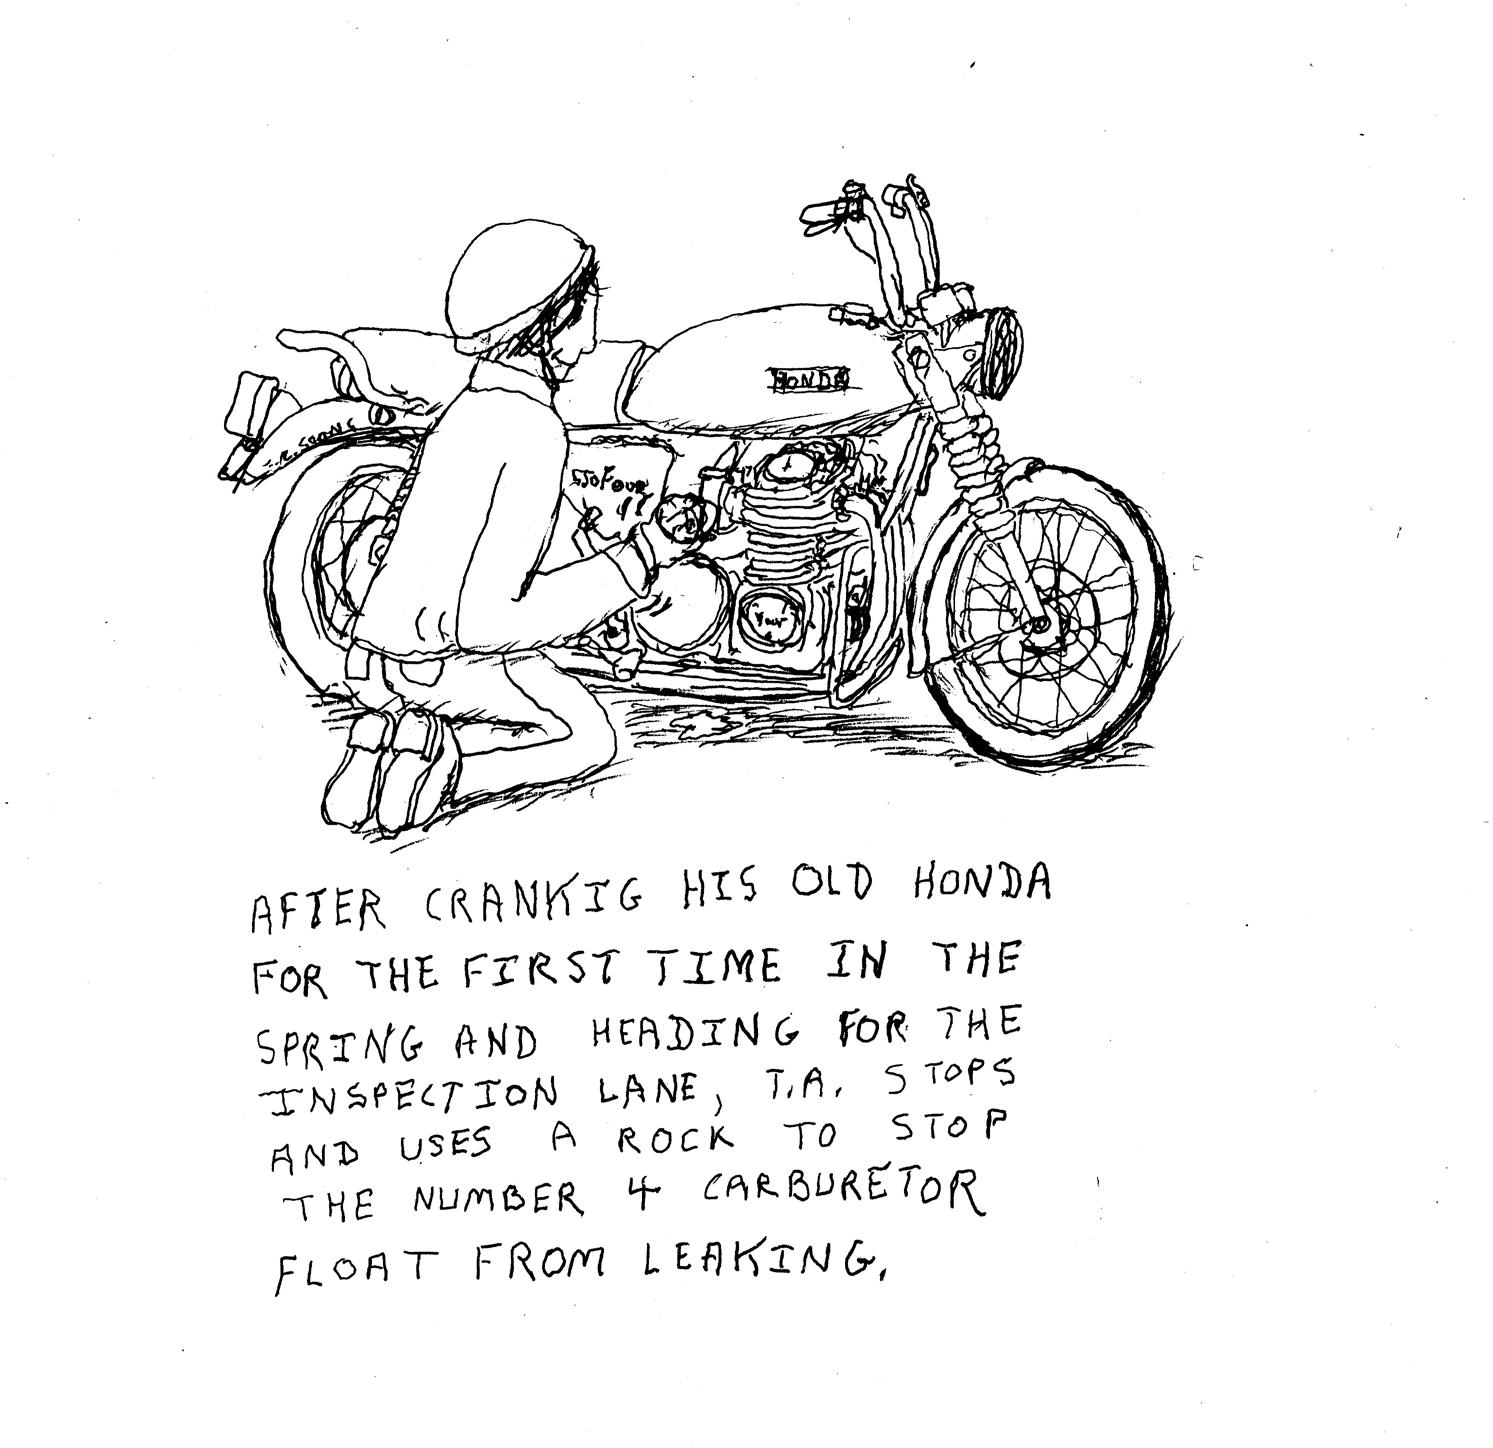 HONDA
550 FOUR
AFTER CRANKIG HIS OLD HONDA
FOR THE FIRST TIME IN THE
SPRING AND HEADING FOR THE
INSPECTION LANE, T.A. STOPS
AND USES A ROCK TO STOP
THE NUMBER 4 CARBURETOR
FLOAT FROM LEAKING.